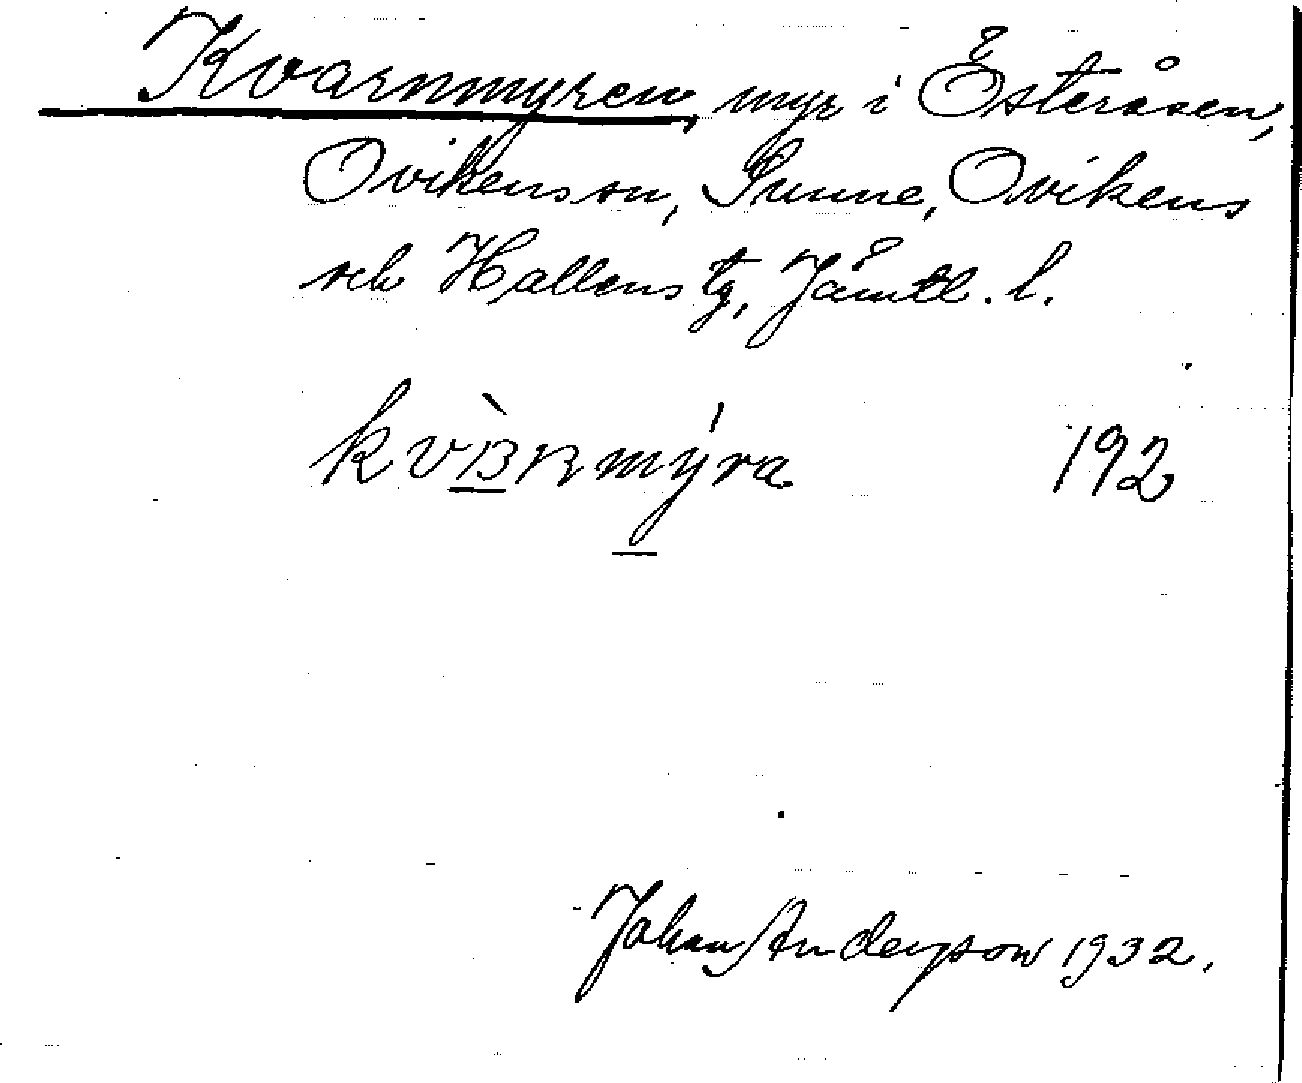 Kvarnmyren, myr i Österåsen,
Ovikens sn, Sunne, Ovikens
och Hallens tg, Jämtl. l.
192
Johan Anderson 1932.